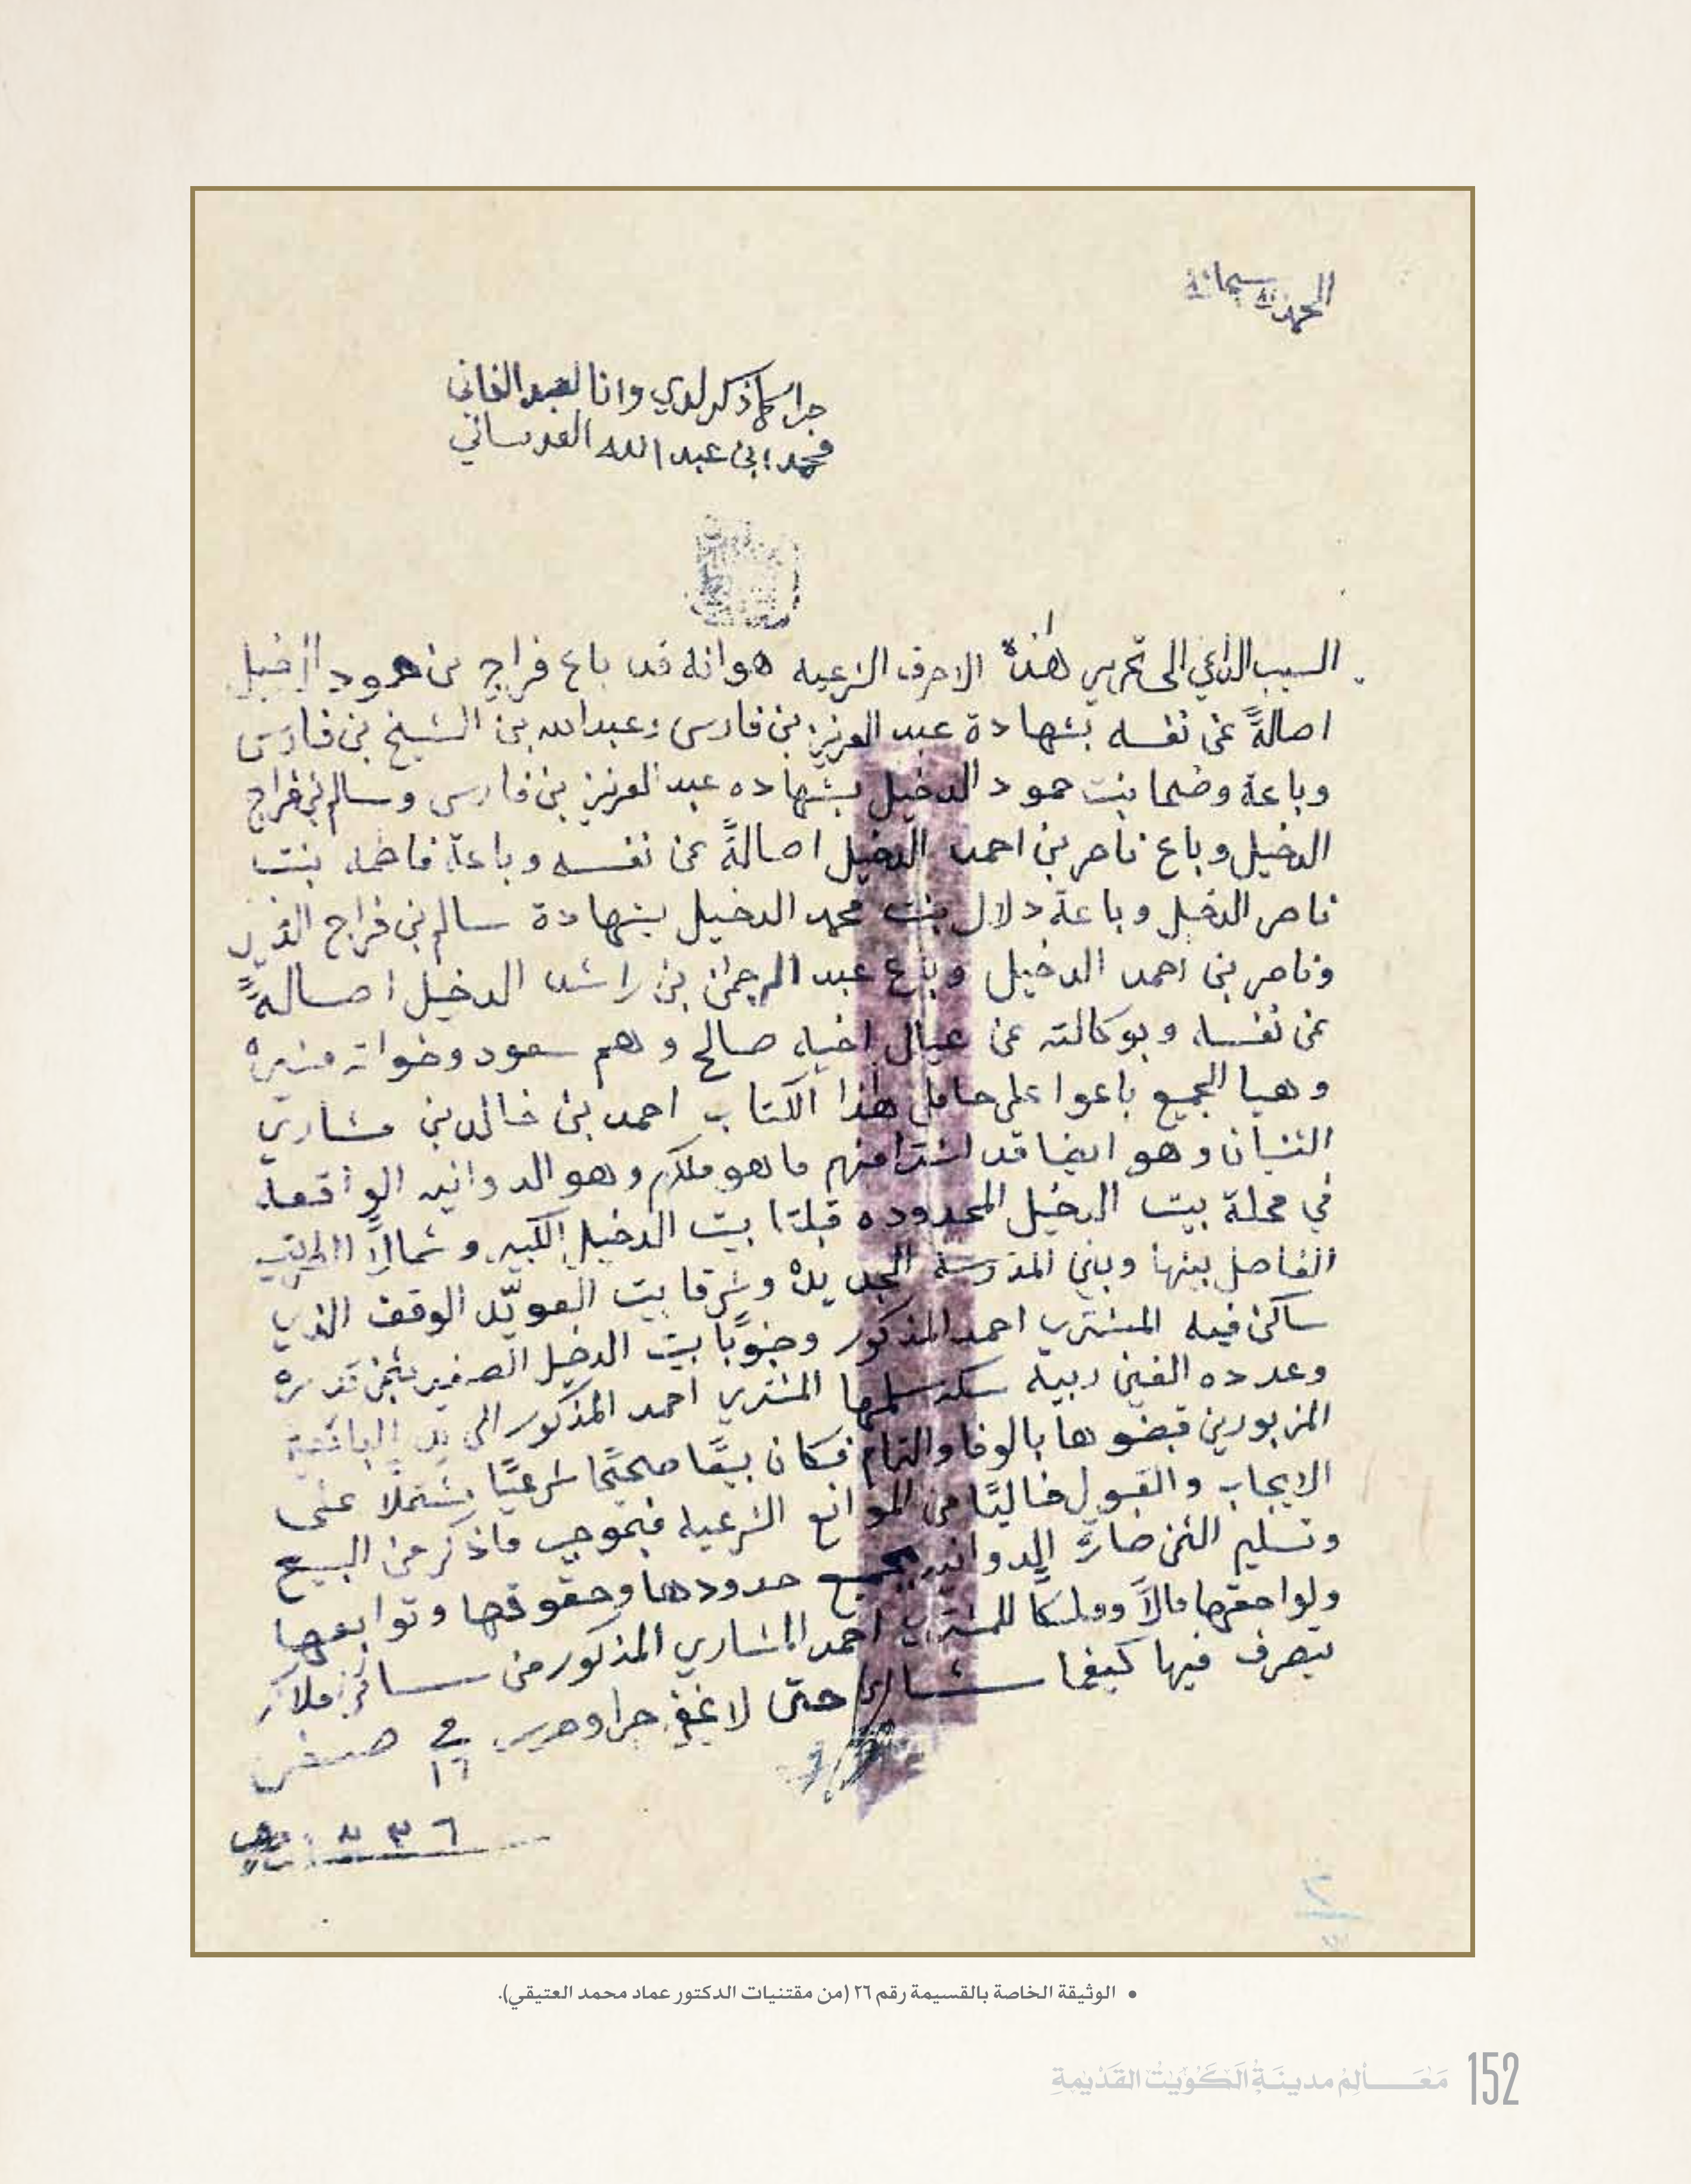 الحمد لله سبحانه
جرا كما ذكر لدي وانا العبد الفاني
محمد ابن عبد الله العدساني
السبب الداعي الى تحرير هذه الاحرف الشرعيه هو انه قد باع فراج بن حمود الدخيل
اصالةً عن نفسه بشهادة عبد العزيز بن فارس وعبد الله بن الشيخ بن فارس
وباعة وضحا بنت حمود الدخيل بشهاده عبد العزيز بن فارس وسالم بن فراج
الدخيل وباع ناصر بن احمد الدخيل اصالةً عن نفسه وباعة فاطمه بنت
ناصر الدخيل وباعة دلال بنت محمد الدخيل بشهادة سالم بن فراج
وناصر بن احمد الدخيل وباع عبد الرحمن بن راشد الدخيل اصالةً
عن نفسه وبوكالته عن عيال اخيه صالح وهم سعود وخواته منيره
وهيا الجميع باعوا على حامل هذا الكتاب احمد بن خالد بن مشاري
وهو ايضا قد اشترا منهم ما هو ملكهم وهو الدوانيه الواقعة
في محلة بيت الدخيل المحدوده قبلتا بيت الدخيل الكبير وشمالاً الطريق
الفاصل بينها وبين المدرسة الجديده وشرقا بيت العويّد الوقف الذي
ساكن فيه المشتري احمد المذكور وجنوبًا بيت الدخيل الصغير بثمن قدره
وعدده الفين ربية سكه سلمها المشتري احمد المذكور الى يد البائعين
المزبورين قبضوها بالوفا والتمام فكان بيعًا صحيحًا شرعيًا مشتملًا على
الايجاب والقبول خاليًا من الموانع الشرعيه فبموجب ماذكر من البيع
وتسليم الثمن صارة الدوانيه بجميع حدودها وحقوقها وتوابعها
ولواحقها مالاً وملكًا للمشتري احمد المشاري المذكور من سائر املاكه
يتصرف فيها كيفما شاء حتى لا يخفى جرا وحرر في ١٦ صفر
١٣٣٦
• الوثيقة الخاصة بالقسيمة رقم ٢٦ (من مقتنيات الدكتور عماد محمد العتيقي).
152 مَعَالِم مدينَة الكُوَيت القَدِيمَة